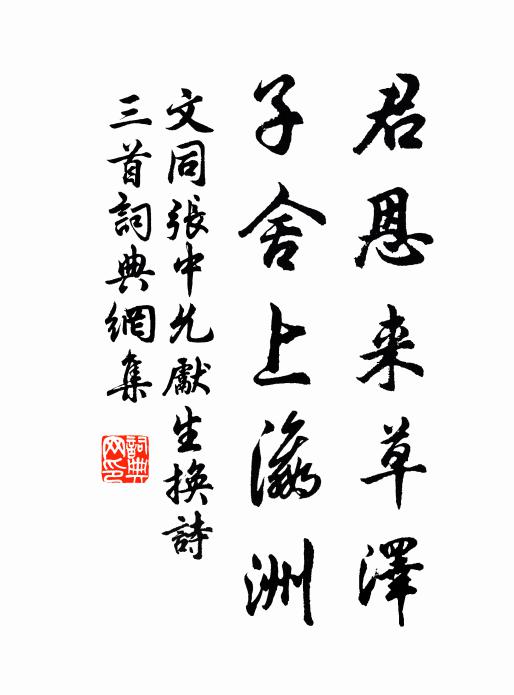 君恩来草澤
子舍上瀛洲
文同張中允獻生換詩
三首詞典網集
詞典
网印